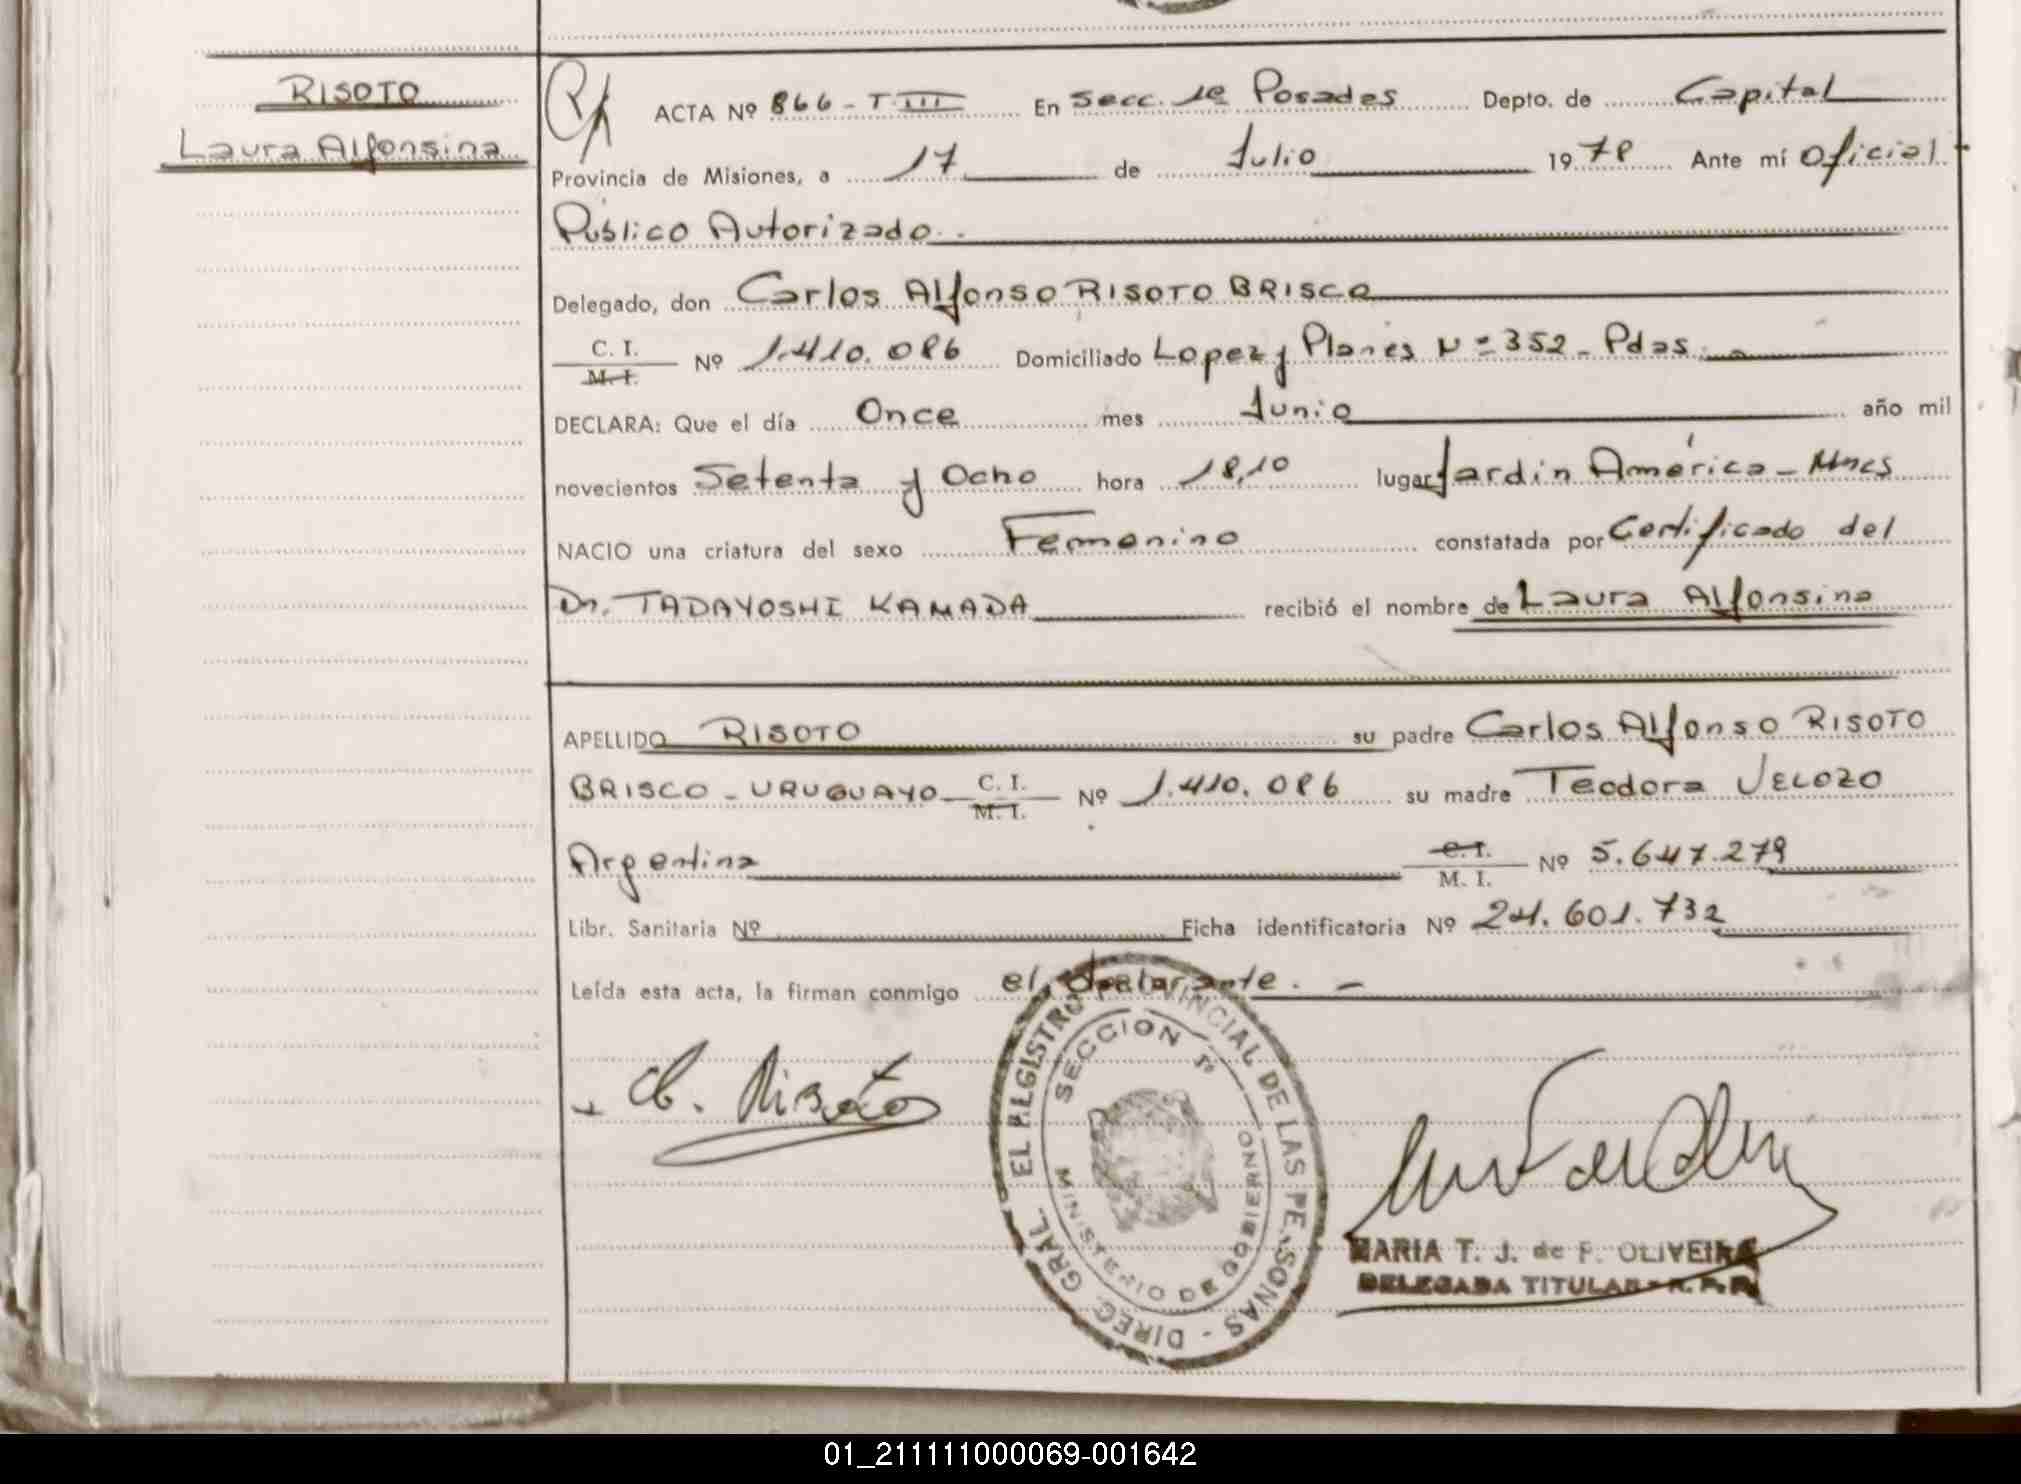 RISOTO
Laura Alfonsina
ACTA Nº 866 - T III En Secc. 1ª Posadas Depto. de Capital
Provincia de Misiones, a 17 de Julio 1978 Ante mí Oficial
Público Autorizado.
Delegado, don Carlos Alfonso RISOTO BRISCO
C. I.
M. I. Nº 1.410.086 Domiciliado Lopez y Planes Nº 352 - Pdas.
DECLARA: Que el día Once mes Junio año mil
novecientos Setenta y Ocho hora 18,10 lugar Jardin América - Mnes
NACIO una criatura del sexo Femenino constatada por Certificado del
Dr. TADAYOSHI KAMADA recibió el nombre de Laura Alfonsina
APELLIDO RISOTO su padre Carlos Alfonso RISOTO
BRISCO - URUGUAYO C. I.
M. I. Nº 1.410.086 su madre Teodora VELOZO
Argentina C. I.
M. I. Nº 5.647.279
Libr. Sanitaria Nº Ficha identificatoria Nº 24.601.732
Leída esta acta, la firman conmigo el declarante. -
C. Risoto
DIREC. GRAL. DEL REGISTRO PROVINCIAL DE LAS PERSONAS -
SECCION 1ª
MINISTERIO DE GOBIERNO
MARIA T. J. de F. OLIVEIRA
DELEGADA TITULAR - R. P. P.
01_211111000069-001642